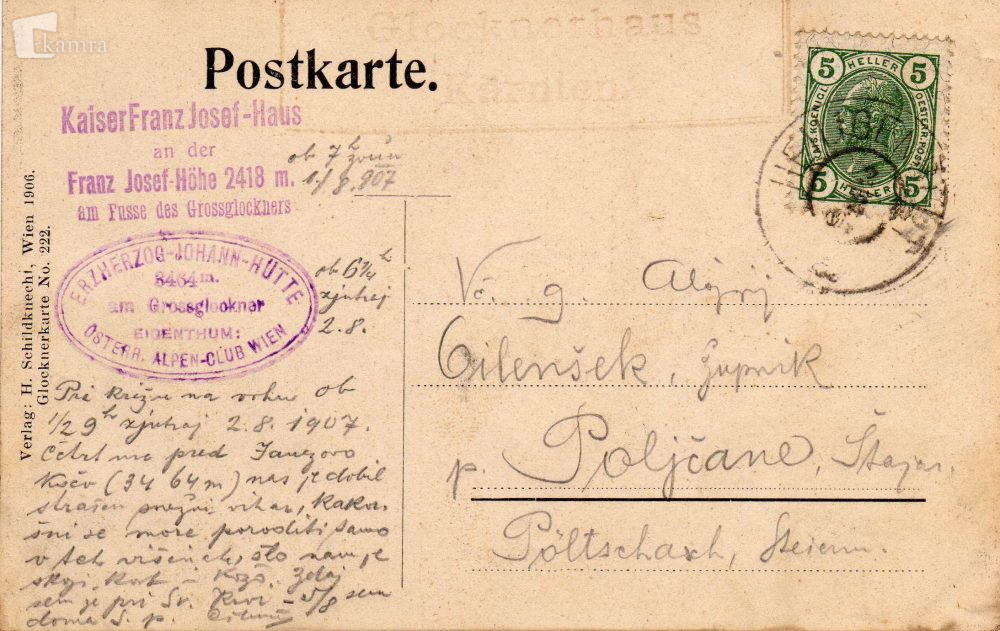 kamra
Glocknerhaus
Kärnten
Postkarte.
KaiserFranzJosef-Haus
an der
Franz Josef-Höhe 2418 m.
am Fusse des Grossglockners
ob 7h zvečer
1/8.907
ERZHERZOG-JOHANN-HÜTTE
3464 m.
am Grossglockner
EIGENTHUM:
ÖSTERR. ALPEN-CLUB WIEN
ob 6 3/4 h
zjutraj
2.8.
Pri križu na vrhu ob
1/2 9h zjutraj 2.8.1907.
Četrt ure pred Janezovo
Kočo (3464m) nas je dobil
strašen snežni vihar, kakor-
šni se more poroditi samo
v teh višinah, šlo nam je
Zdaj
sem je pri Sv. Krvi - 5/8 sem
doma S. p.
Verlag: H. Schildknecht, Wien 1906.
Glocknerkarte No. 222.
5 HELLER 5
5 HELLER 5
Vč. g. Alojzij
Cilenšek, župnik
p. Poljčane, Štajer.
Pöltschach, Steierm.